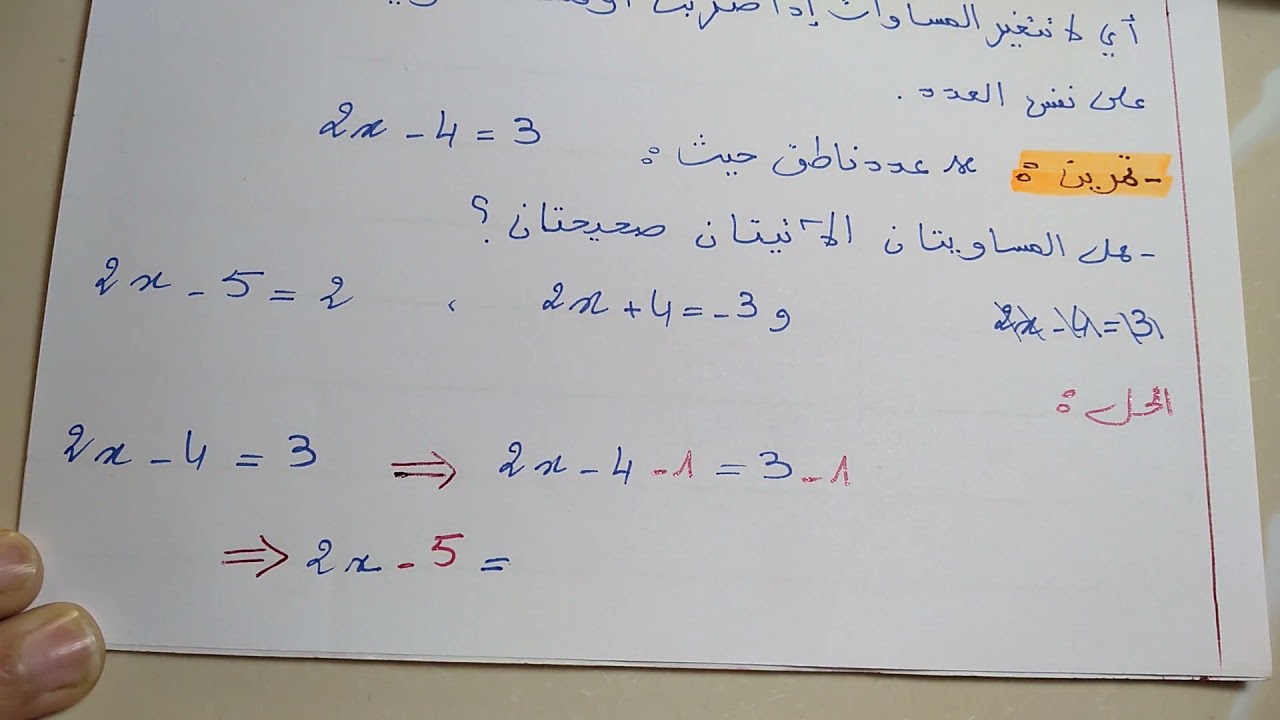 أي لا تتغير المساواة إذا ضربنا
على نفس العدد.
- تمرين : x عدد ناطق حيث : 2x - 4 = 3
- هل المساويتان الآتيتان صحيحتان ؟
2x - 4 = 3 2x + 4 = -3 و ، 2x - 5 = 2
الحل :
2x - 4 = 3 ⟹ 2x - 4 - 1 = 3 - 1
⟹ 2x - 5 =